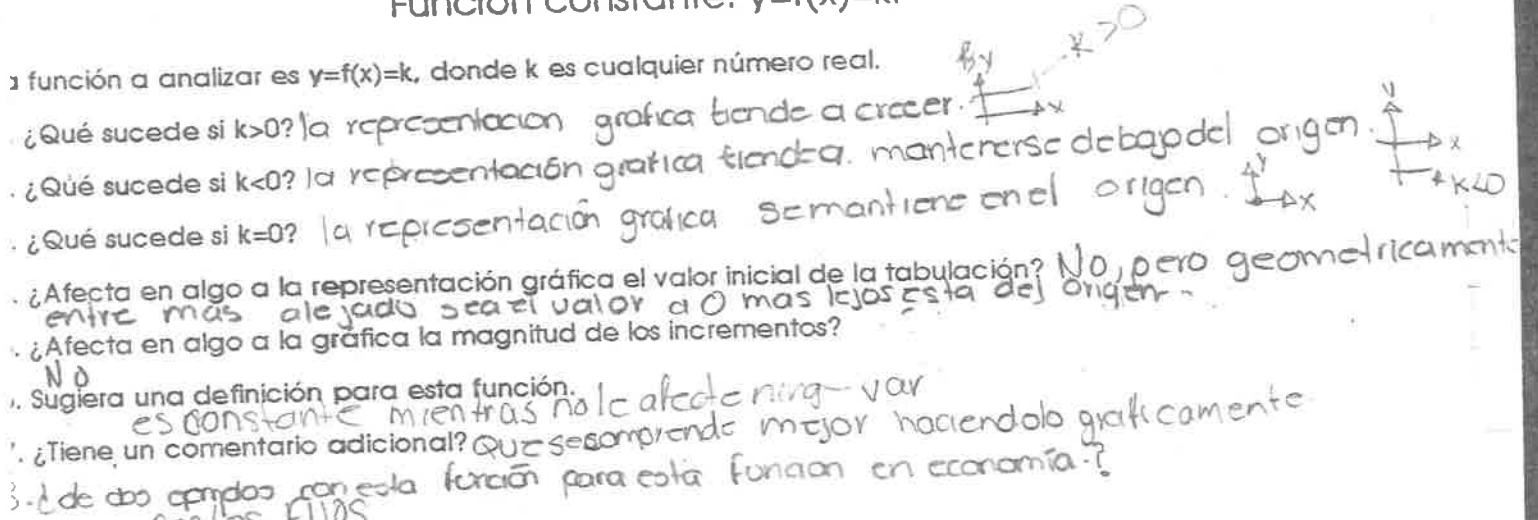 Función constante: y=f(x)=k.
a función a analizar es y=f(x)=k, donde k es cualquier número real.
y k>0
x
. ¿Qué sucede si k>0? la representacion grafica tiende a crecer.
. ¿Qué sucede si k<0? la representación grafica tiende a. mantenerse debajo del origen.
y
x
k<0
. ¿Qué sucede si k=0? la representación grafica se mantiene en el origen.
y
x
. ¿Afecta en algo a la representación gráfica el valor inicial de la tabulación? No, pero geometricamente
entre mas alejado sea el valor a 0 mas lejos esta del origen.
. ¿Afecta en algo a la gráfica la magnitud de los incrementos?
No
. Sugiera una definición para esta función.
es constante mientras no le afecte ning var
. ¿Tiene un comentario adicional? Que se comprende mejor haciendolo graficamente
3. ¿ de dos con esta función para esta función en economía.?
fijos